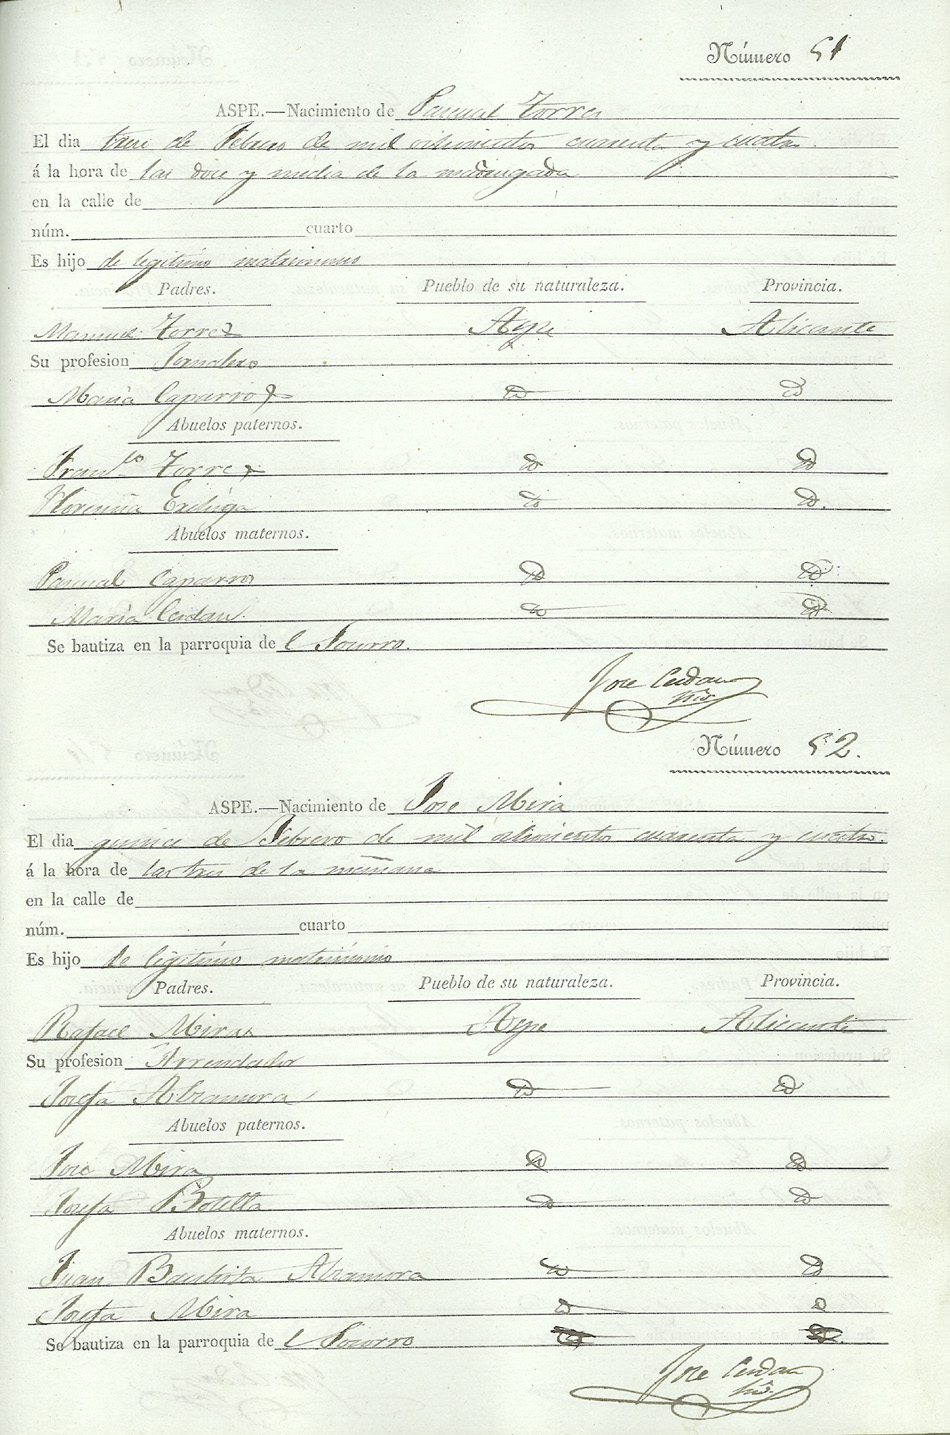 Número 51
ASPE.—Nacimiento de Pascual Torres
El dia tres de Febrero de mil ochocientos cuarenta y cuatro
á la hora de las doce y media de la madrugada
en la calle de
núm. cuarto
Es hijo de legitimo matrimonio
Padres. Pueblo de su naturaleza. Provincia.
Manuel Torres Aspe Alicante
Su profesion Jornalero
Maria Caparros id id
Abuelos paternos.
Franco Torres id id
Florencia id id.
Abuelos maternos.
Pascual Caparros id id
Maria Cerdan. id id
Se bautiza en la parroquia de l Socorro.
Jose Cerdan
Número 52.
ASPE.—Nacimiento de Jose Mira
El dia quince de Febrero de mil ochocientos cuarenta y cuatro.
á la hora de las tres de la mañana
en la calle de
núm. cuarto
Es hijo de legitimo matrimonio
Padres. Pueblo de su naturaleza. Provincia.
Rafael Miras Aspe Alicante
Su profesion Arrendador
Josefa Alzamora id id
Abuelos paternos.
Jose Mira id id
Josefa Botella id id
Abuelos maternos.
Juan Bautista Alzamora id id
Josefa Mira id id
Se bautiza en la parroquia de l Socorro
Jose Cerdan